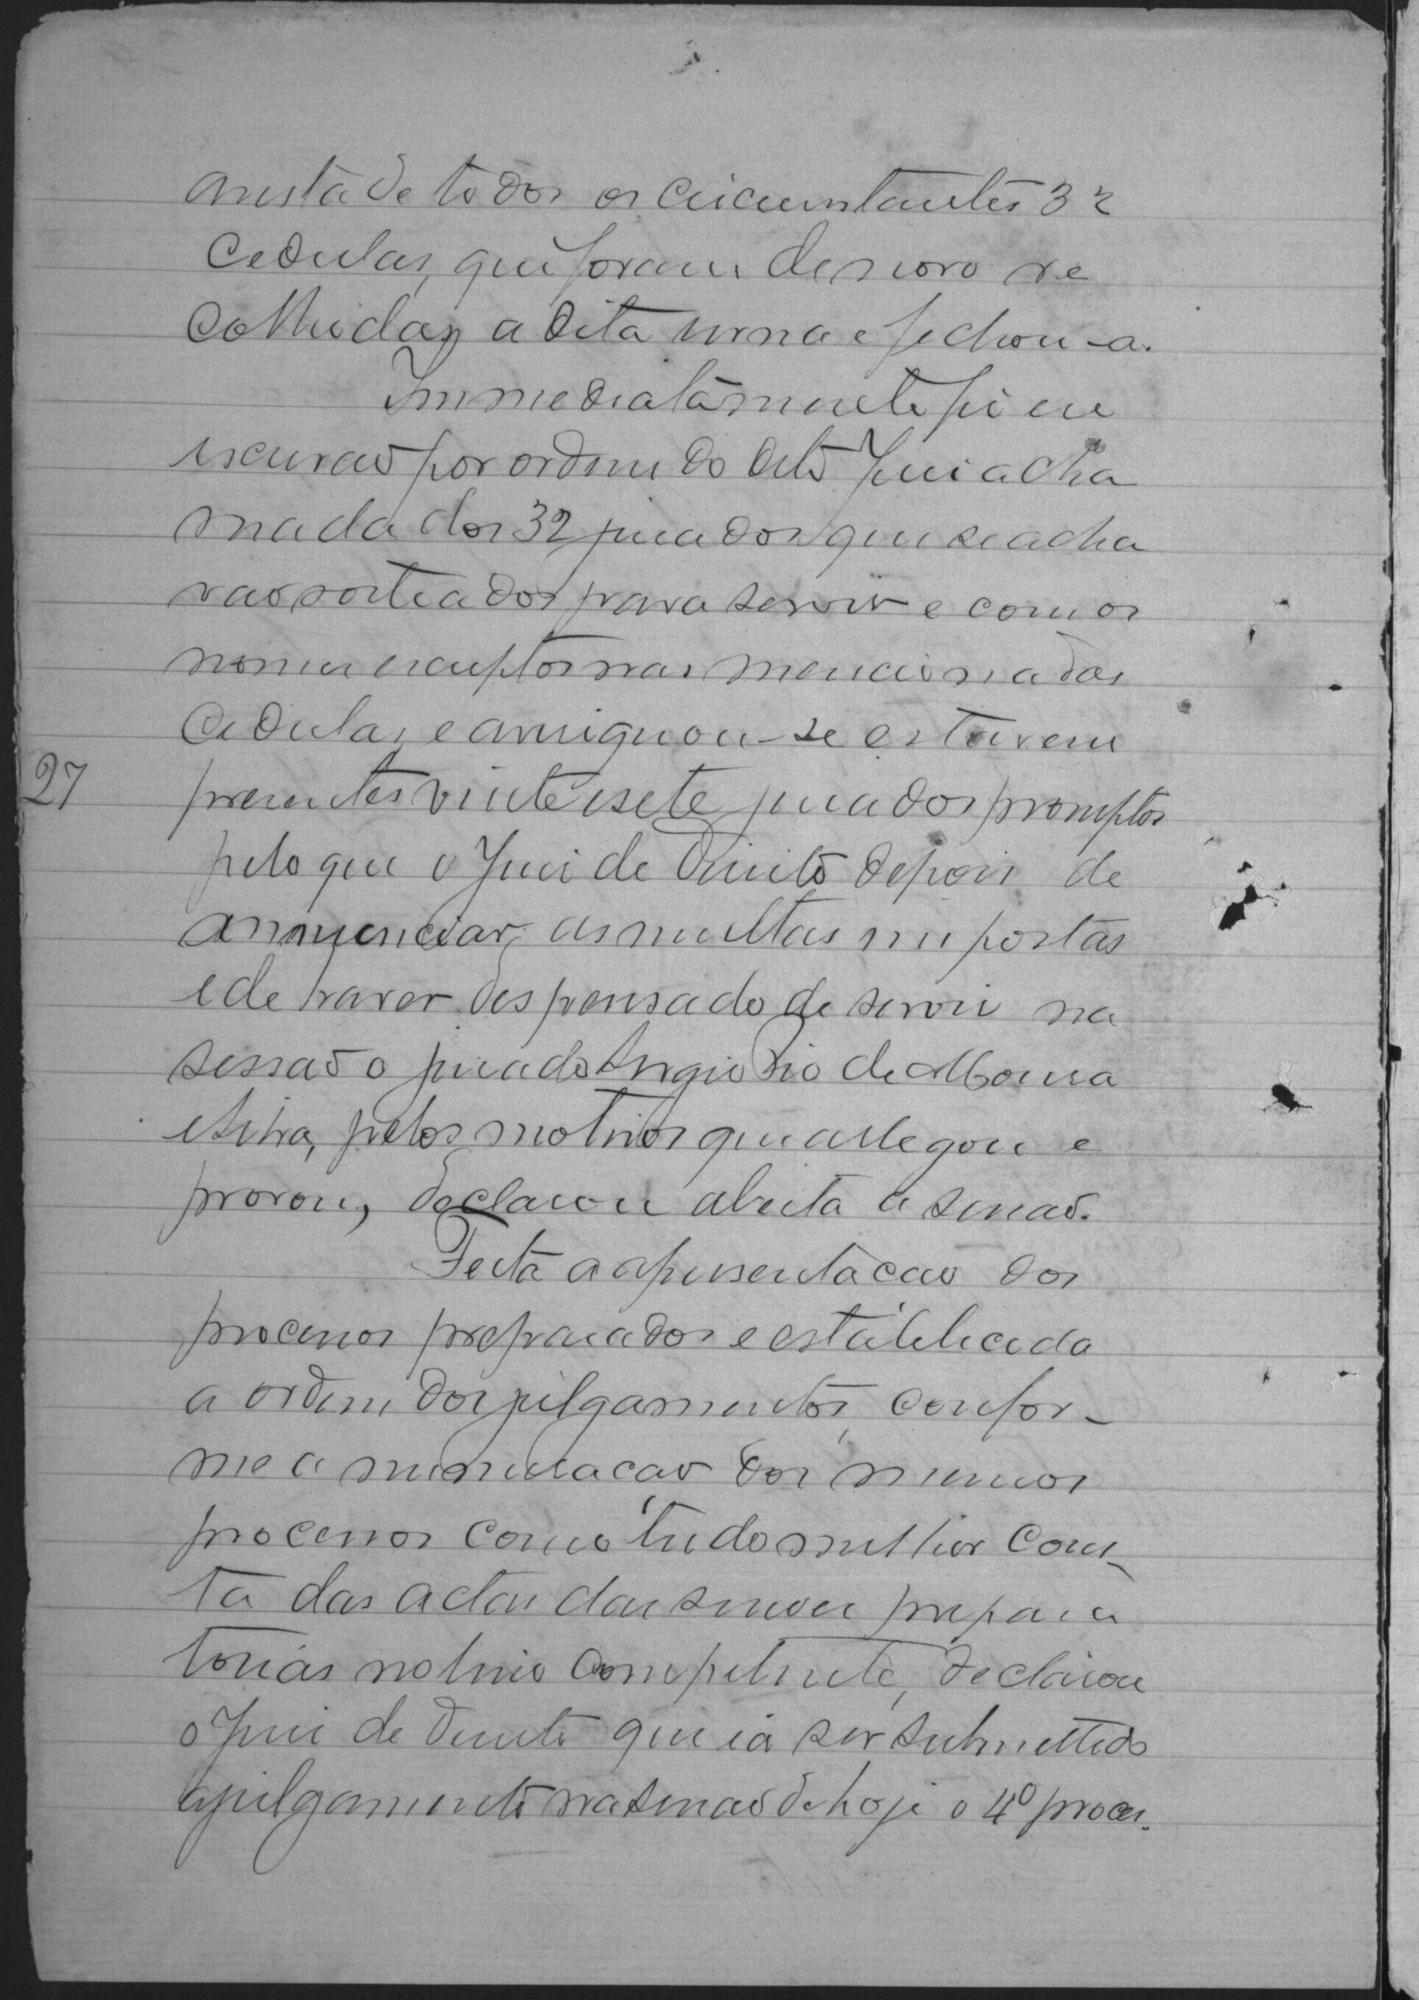 a vista de todos os circumstantes 32
cedulas, que foram de novo re
colhidas a dita urna e fechou-a.
Immediatamente fiz eu
escrivão por ordem do dito Juiz a cha
mada dos 32 jurados que se acha
vao sorteados para servir e com os
nomes escriptos nas mencionadas
cedulas, e averiguou-se estarem
27 presentes vinte e sete jurados promptos
pelo que o Juiz de Direito depois de
annunciar, as multas impostas
e de haver dispensado de servir na
sessão o jurado Sergio Pio de Moura
e Silva, pelos motivos que allegou e
provou, declarou aberta a sessão.
Feita a apresentacao dos
processos preparados e estabelecida
a ordem dos julgamentos, confor-
me a numeracao dos mesmos
processos como tudo melhor cons-
ta das actas das sessoes prepara
torias no livro competente, declarou
o Juiz de Direito que ia ser submettido
a julgamento na sessão de hoje o 4º proces.